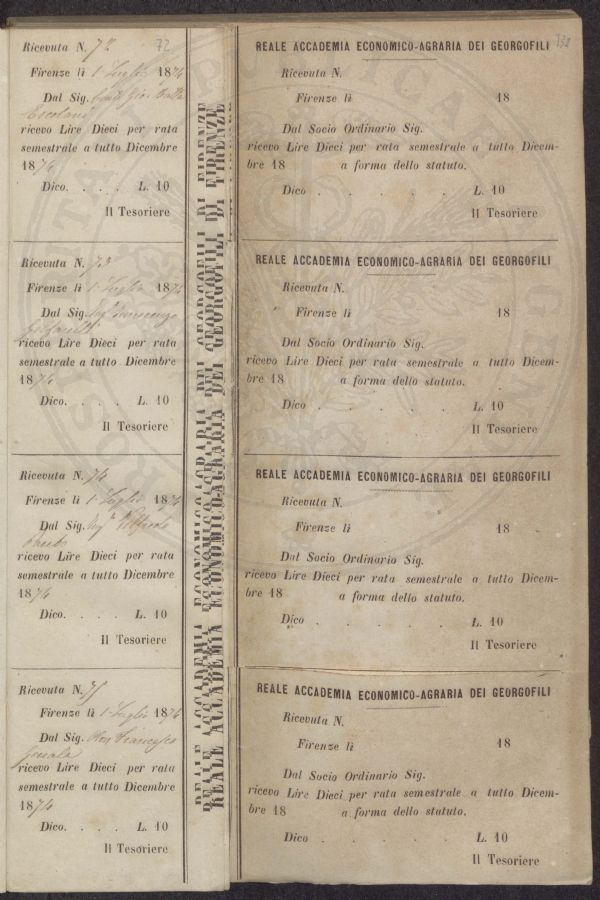 Ricevuta N. 72
72
Firenze li 1 Luglio 1874
Dal Sig. Conte Gio. Batta
ricevo Lire Dieci per rata
semestrale a tutto Dicembre
1874
Dico. . . . L. 10
Il Tesoriere
Ricevuta N. 73
Firenze li 1 Luglio 1874
Dal Sig.
ricevo Lire Dieci per rata
semestrale a tutto Dicembre
1874
Dico. . . . L. 10
Il Tesoriere
Ricevuta N. 74
Firenze li 1 Luglio 1874
Dal Sig.
ricevo Lire Dieci per rata
semestrale a tutto Dicembre
1874
Dico. . . . L. 10
Il Tesoriere
Ricevuta N. 75
Firenze li 1 Luglio 1874
Dal Sig. Francesco
ricevo Lire Dieci per rata
semestrale a tutto Dicembre
1874
Dico. . . . L. 10
Il Tesoriere
REALE ACCADEMIA ECONOMICO-AGRARIA DEI GEORGOFILI DI FIRENZE
REALE ACCADEMIA ECONOMICO-AGRARIA DEI GEORGOFILI DI FIRENZE
REALE ACCADEMIA ECONOMICO-AGRARIA DEI GEORGOFILI
Ricevuta N.
Firenze li 18
Dal Socio Ordinario Sig.
ricevo Lire Dieci per rata semestrale a tutto Dicem-
bre 18 a forma dello statuto.
Dico . . . . L. 10
Il Tesoriere
REALE ACCADEMIA ECONOMICO-AGRARIA DEI GEORGOFILI
Ricevuta N.
Firenze li 18
Dal Socio Ordinario Sig.
ricevo Lire Dieci per rata semestrale a tutto Dicem-
bre 18 a forma dello statuto.
Dico . . . . L. 10
Il Tesoriere
REALE ACCADEMIA ECONOMICO-AGRARIA DEI GEORGOFILI
Ricevuta N.
Firenze li 18
Dal Socio Ordinario Sig.
ricevo Lire Dieci per rata semestrale a tutto Dicem-
bre 18 a forma dello statuto.
Dico . . . . L. 10
Il Tesoriere
REALE ACCADEMIA ECONOMICO-AGRARIA DEI GEORGOFILI
Ricevuta N.
Firenze li 18
Dal Socio Ordinario Sig.
ricevo Lire Dieci per rata semestrale a tutto Dicem-
bre 18 a forma dello statuto.
Dico . . . . L. 10
Il Tesoriere